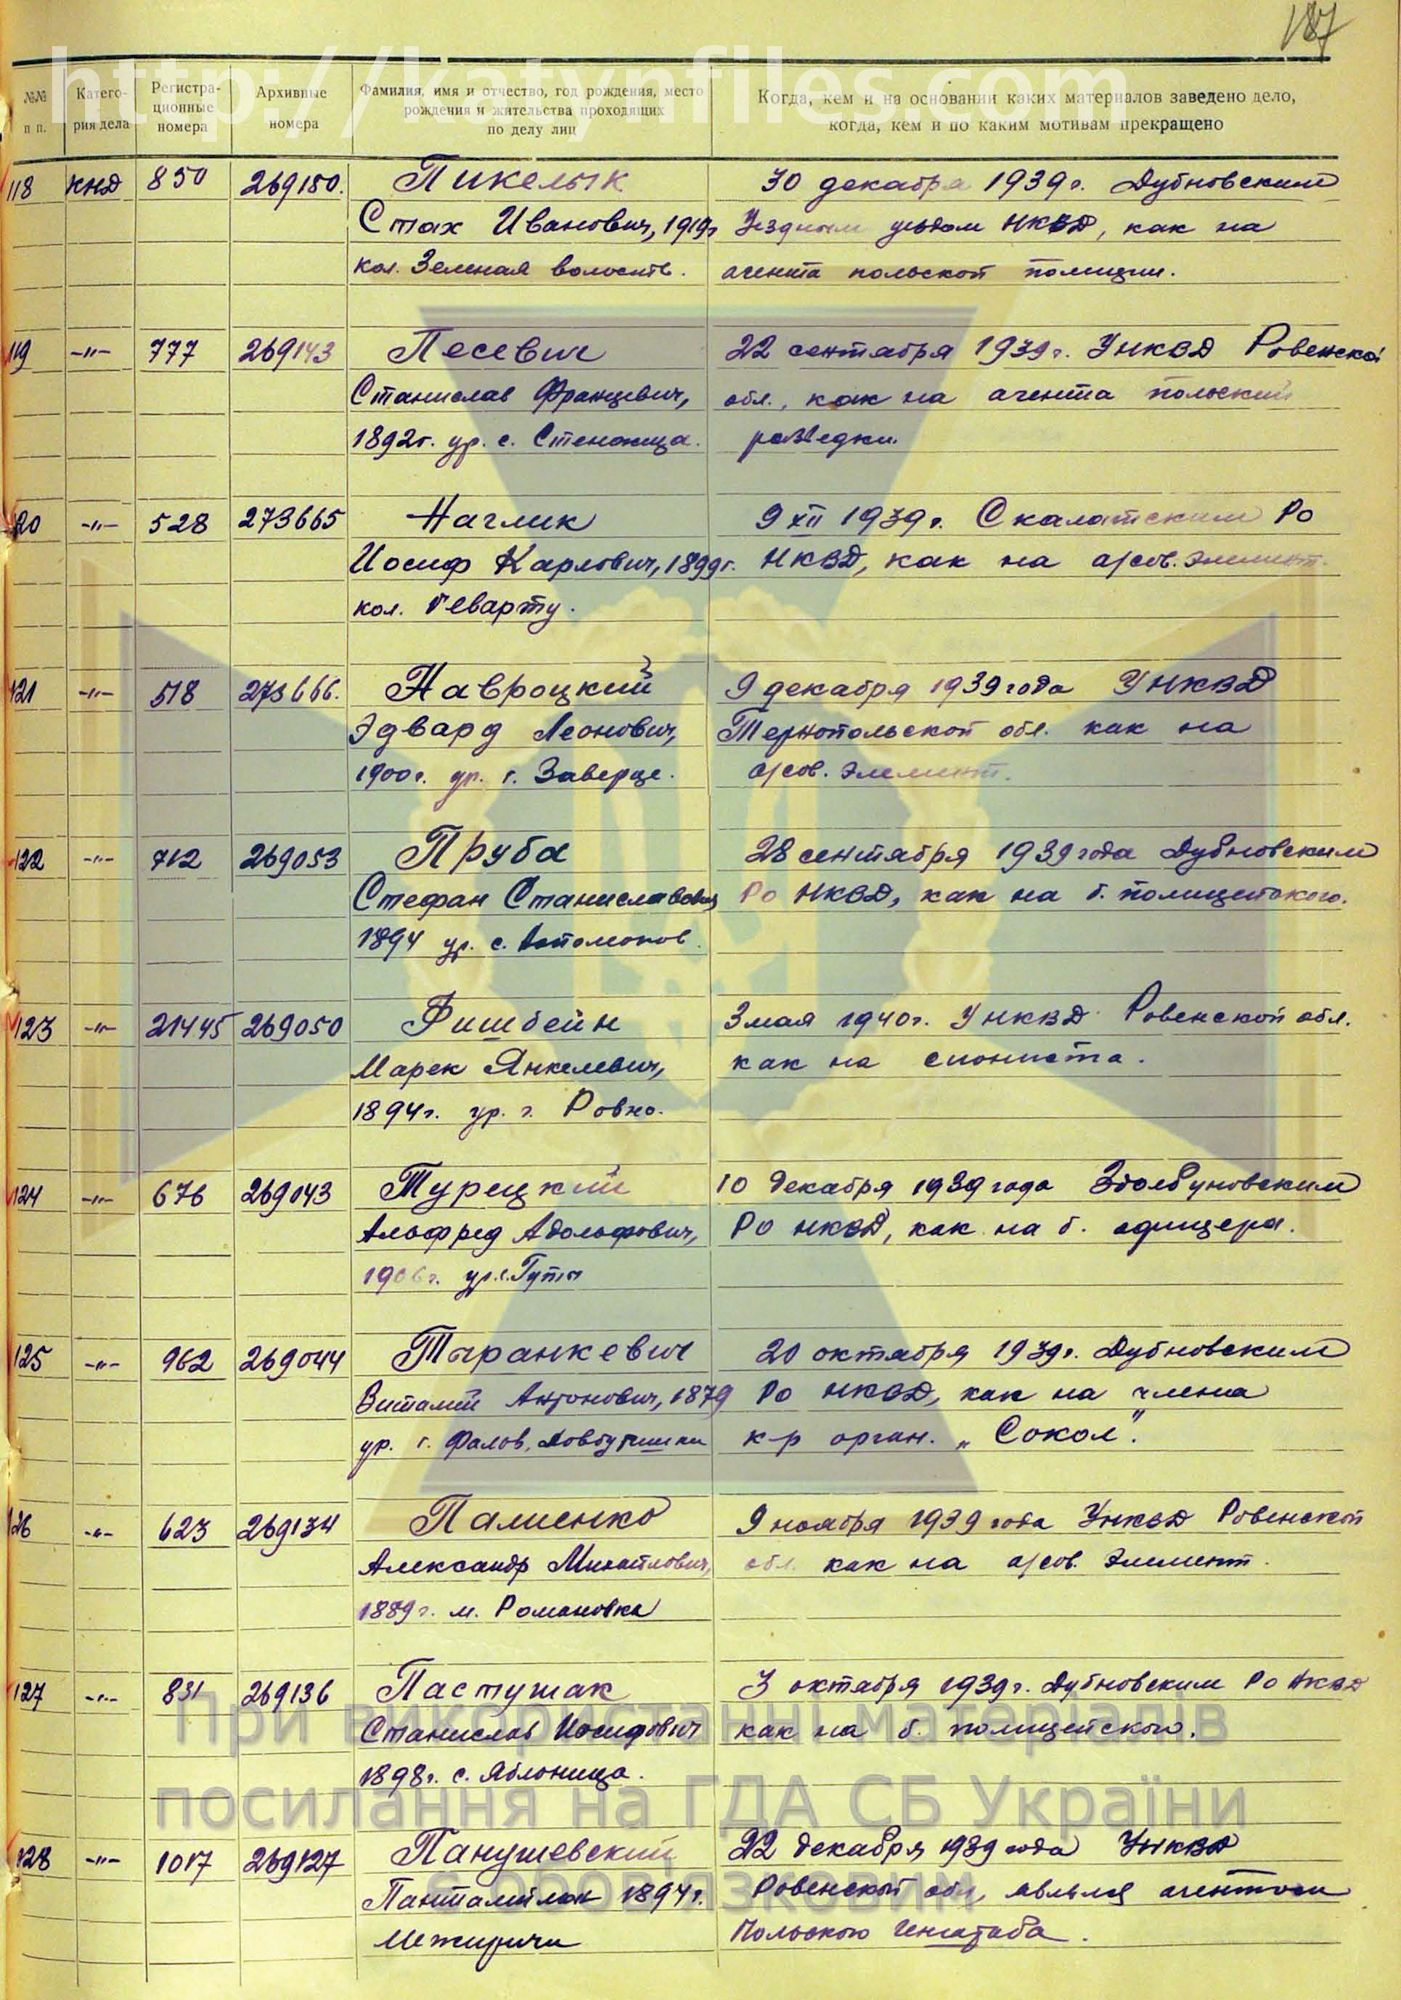 187
http://katynfiles.com
№№ п п.
Катего-
рия дела
Регистра-
ционные
номера
Архивные
номера
Фамилия, имя и отчество, год рождения, место
рождения и жительства проходящих
по делу лиц
Когда, кем и на основании каких материалов заведено дело,
когда, кем и по каким мотивам прекращено
118 КНД 850 269150. Пикелык 30 декабря 1939г. Дубновским
Стах Иванович, 1919г Уездным УНКВД, как на
кол. Зеленая волость. агента польской полиции.
119 -"- 777 269143 Песевич 22 сентября 1939г. УНКВД Ровенской
Станислав Францевич, обл., как на агента польский
1892г. ур. с. разведки
120 -"- 528 273665 Наглик 9 XII 1939г. Скалатским РО
Иосиф Карлович, 1899г. НКВД, как на а/сов. элемент.
кол.
121 -"- 518 273666. Навроцкий 9 декабря 1939 года УНКВД
Эдвард Леонович, Тернопольской обл. как на
1900г. ур. г. Заверце. а/сов. элемент.
122 -"- 712 269053 Пруба 28 сентября 1939 года Дубновским
Стефан Станиславович РО НКВД, как на б. полицейского.
1894 ур. с.
123 -"- 21445 269050 Фишбейн 3 мая 1940г. УНКВД Ровенской обл.
Марек Янкелевич, как на сиониста.
1894г. ур. г. Ровно.
124 -"- 676 269043 Турецкий 10 декабря 1939 года Здолбуновским
Альфред Адольфович, РО НКВД, как на б. офицера.
1906г. ур. с. Гуты
125 -"- 962 269044 Тыранкевич 20 октября 1939г. Дубновским
Виталий Антонович, 1879 РО НКВД, как на члена
ур. г. к-р орган. „Сокол".
126 -"- 623 269134 Палиенко 9 ноября 1939 года УНКВД Ровенской
Александр Михайлович, обл. как на а/сов. элемент.
1889г. м. Романовка
127 -"- 831 269136 Пастушак 3 октября 1939г. Дубновским РО НКВД
Станислав Иосифович как на б. полицейского.
1898г. с. Яблоница.
При використанні матеріалів
посилання на ГДА СБ України
є обов'язковим
128 -"- 1017 269127 Панушевский 22 декабря 1939 года УНКВД
1894г. Ровенской обл, являлся агентом
Межиричи Польского Генштаба.